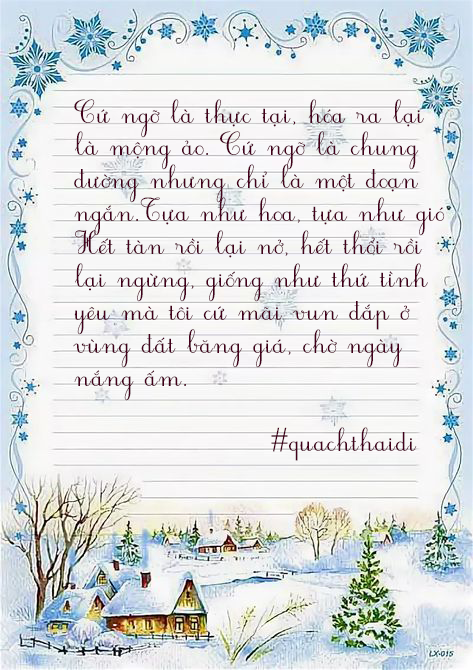 Cứ ngỡ là thực tại, hóa ra lại
là mộng ảo. Cứ ngỡ là chung
đường nhưng chỉ là một đoạn
ngắn.Tựa như hoa, tựa như gió
Hết tàn rồi lại nở, hết thổi rồi
lại ngừng, giống như thứ tình
yêu mà tôi cứ mãi vun đắp ở
vùng đất băng giá, chờ ngày
nắng ấm.
#quachthaidi
LX-015